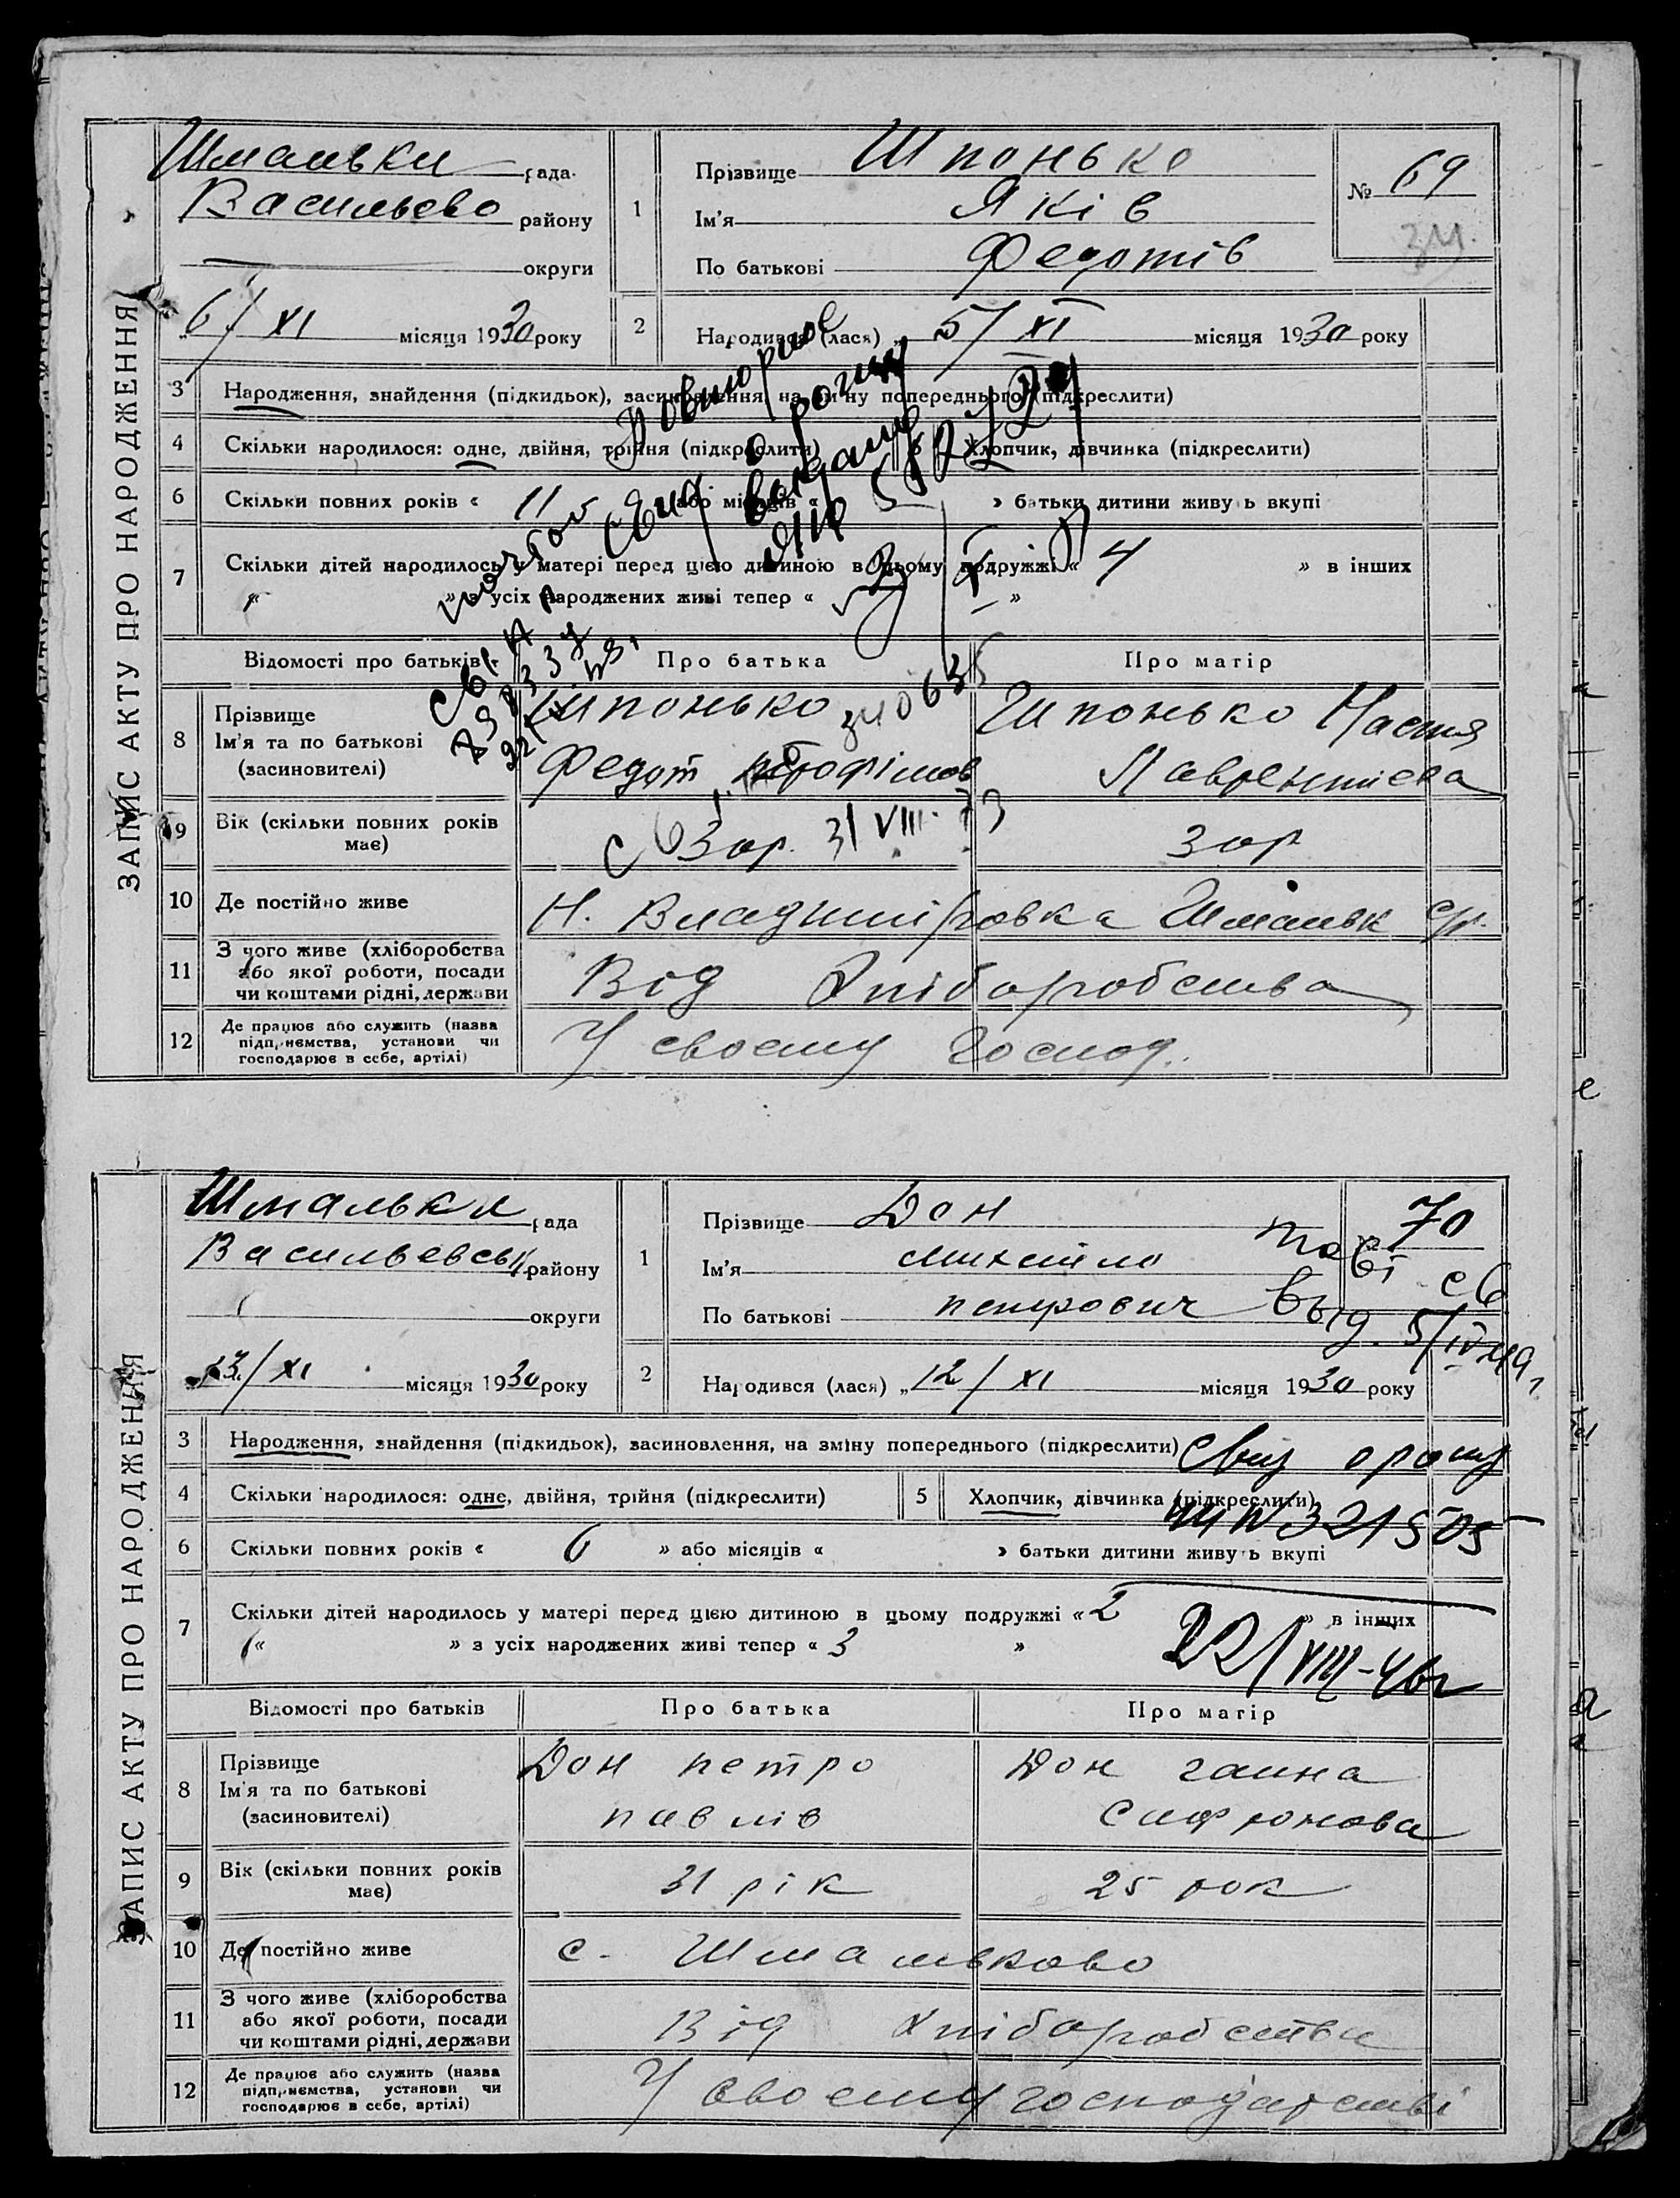 ЗАПИС АКТУ ПРО НАРОДЖЕННЯ
Шмальки рада
Васильево району
округи
1 Прізвище Шпонько
Ім'я Яків
По батькові Федотів
№ 69
6/XI місяця 1930 року
2 Народився (лася) „ 5/XI місяця 1930 року
3 Народження, знайдення (підкидьок), засиновлення, на зміну попереднього (підкреслити)
4 Скільки народилося: одне, двійня, трійня (підкреслити) Хлопчик, дівчинка (підкреслити)
6 Скільки повних років « 11 або місяців « » батьки дитини живуть вкупі
7 Скільки дітей народилось у матері перед цією дитиною в цьому подружжі « 4 » в інших
« » з усіх народжених живі тепер « »
Повторное
340635
31 VIII. 73
Відомості про батьків Про батька Про матір
8 Прізвище
Ім'я та по батькові
(засиновителі)
Шпонько
Федот
Шпонько Настя
Лаврентиева
9 Вік (скільки повних років
має)
30р. 30р
10 Де постійно живе Н. Владиміровка Шмальк с/р.
11 З чого живе (хліборобства
або якої роботи, посади
чи коштами рідні, держави
Від Хліборобства
12 Де працює або служить (назва
підприємства, установи чи
господарює в себе, артілі)
У своему господ.
ЗАПИС АКТУ ПРО НАРОДЖЕННЯ
Шмальки рада
Васильевськ району
округи
1 Прізвище Дон
Ім'я михайло
По батькові петрович
70
Выд. 5/IV 49г
13/XI місяця 1930 року
2 Народився (лася) „ 12/XI місяця 1930 року
3 Народження, знайдення (підкидьок), засиновлення, на зміну попереднього (підкреслити)
4 Скільки народилося: одне, двійня, трійня (підкреслити) 5 Хлопчик, дівчинка (підкреслити)
№ 321505
6 Скільки повних років « 6 » або місяців « » батьки дитини живуть вкупі
7 Скільки дітей народилось у матері перед цією дитиною в цьому подружжі « 2 » в інших
« » з усіх народжених живі тепер « 3 »
22/VIII-46г
Відомості про батьків Про батька Про матір
8 Прізвище
Ім'я та по батькові
(засиновителі)
Дон петро
павлів
Дон ганна
Сафронова
9 Вік (скільки повних років
має)
31 рік 25 рок
10 Де постійно живе с. Шмальково
11 З чого живе (хліборобства
або якої роботи, посади
чи коштами рідні, держави
Від Хліборобства
12 Де працює або служить (назва
підприємства, установи чи
господарює в себе, артілі)
У своему господарстві